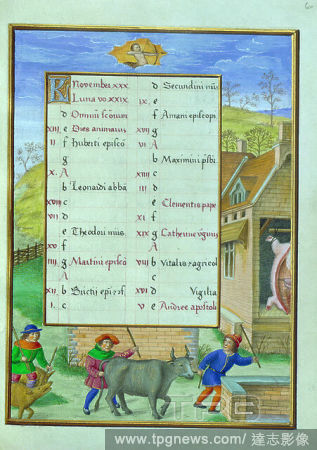 6
KL November xxx
Luna vo xxix
d Omniū scōrum
xiii e Dies animarum
ii f Huberti episco
g
x A
b Leonardi abba
xviii c
vii d
e Theodori mūs
xv f
iiii g Martini episco
A
xii b Brictij epī
i c
d Secundini mūs
ix e
f Amani episcopi
xvii g
vi A
b Maximini p̄sbi
c
d
e Clementis pape
xi f
xix g Catherine v̄ginis
A
viii b Vitalis agricol
c
xvi d Vigilia
v e Andree apostoli
TPG
www.tpgnews.com/ 達志影像